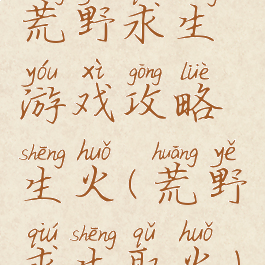 荒野求生
yóu xì gōng lüè
游戏攻略
shēng huǒ huāng yě
生火(荒野
qiú shēng qǔ huǒ
求生取火)